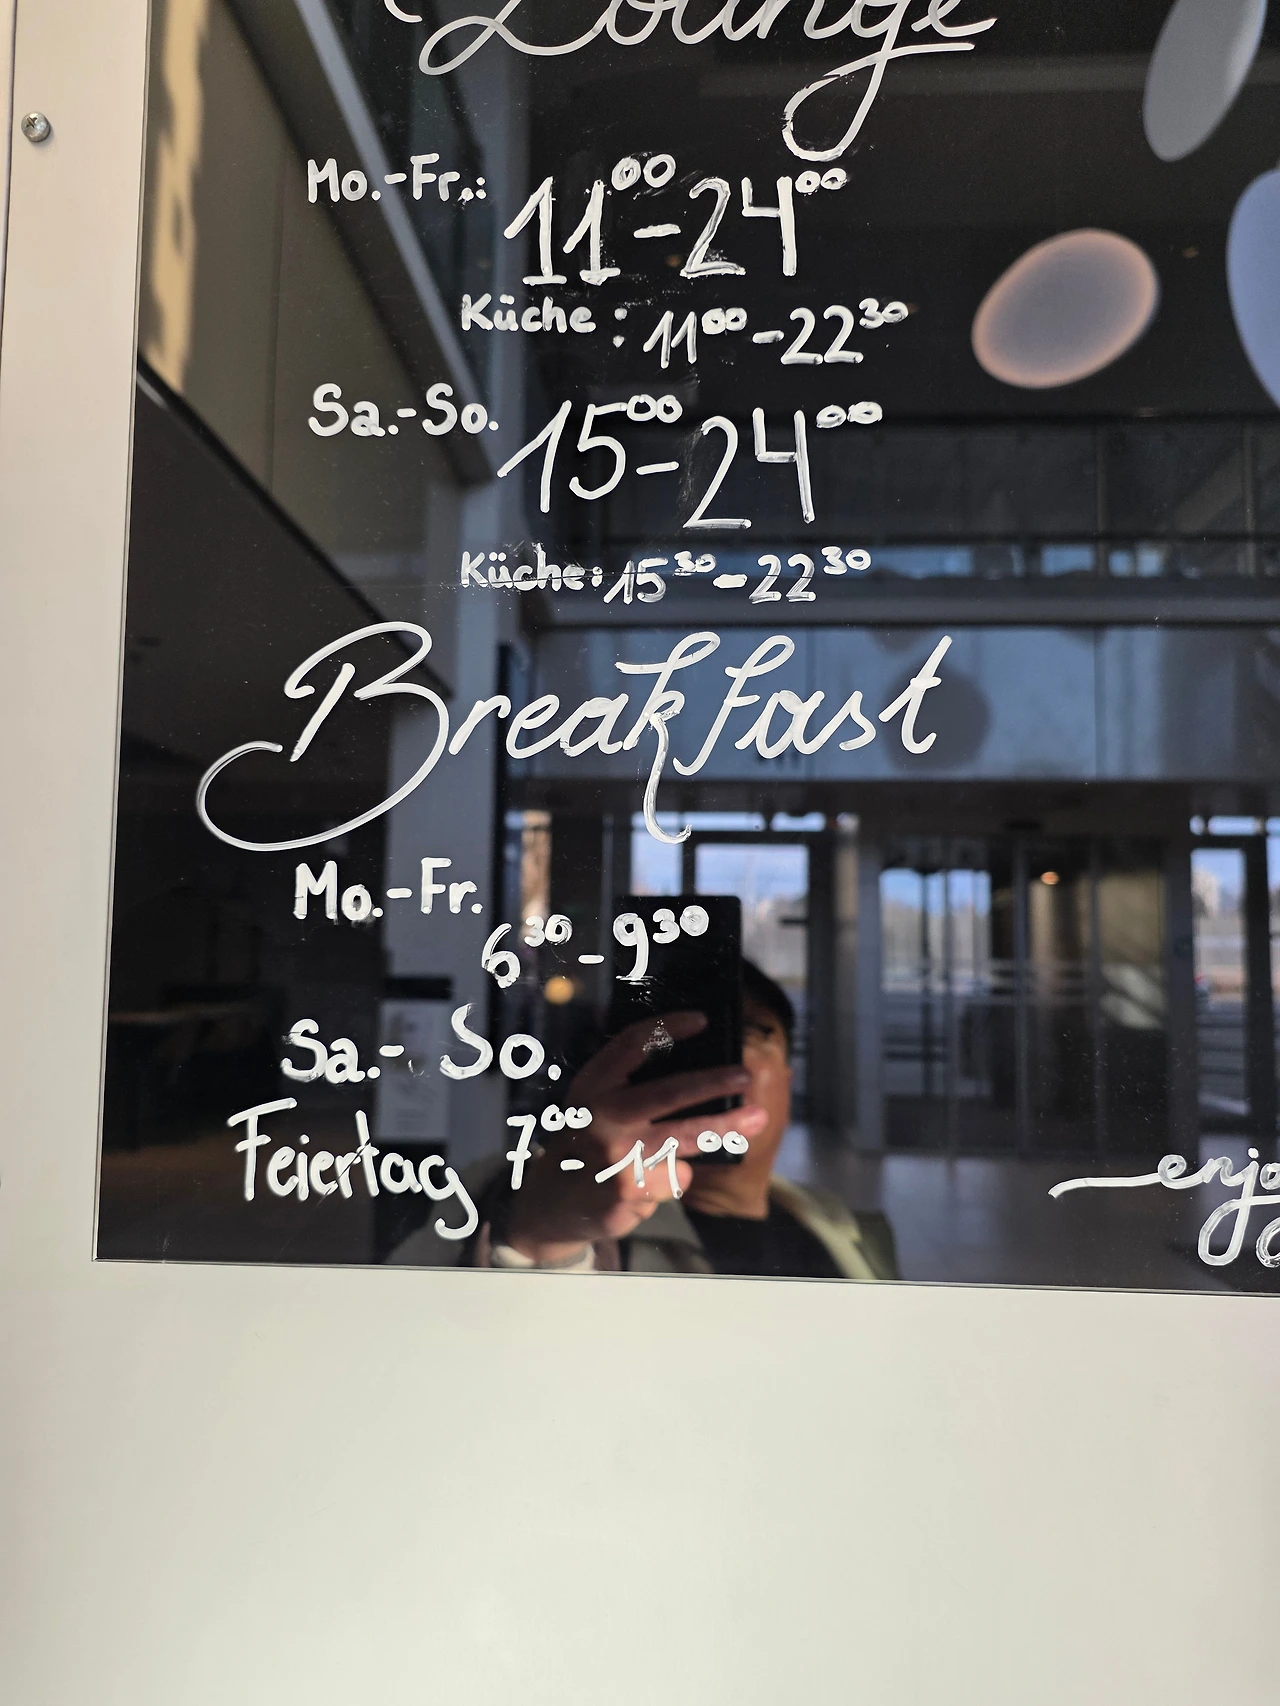 Lounge
Mo.-Fr.: 11⁰⁰-24⁰⁰
Küche: 11⁰⁰-22³⁰
Sa.-So. 15⁰⁰-24⁰⁰
Küche: 15³⁰-22³⁰
Breakfast
Mo.-Fr.
6³⁰-9³⁰
Sa.- So.
Feiertag 7⁰⁰-11⁰⁰